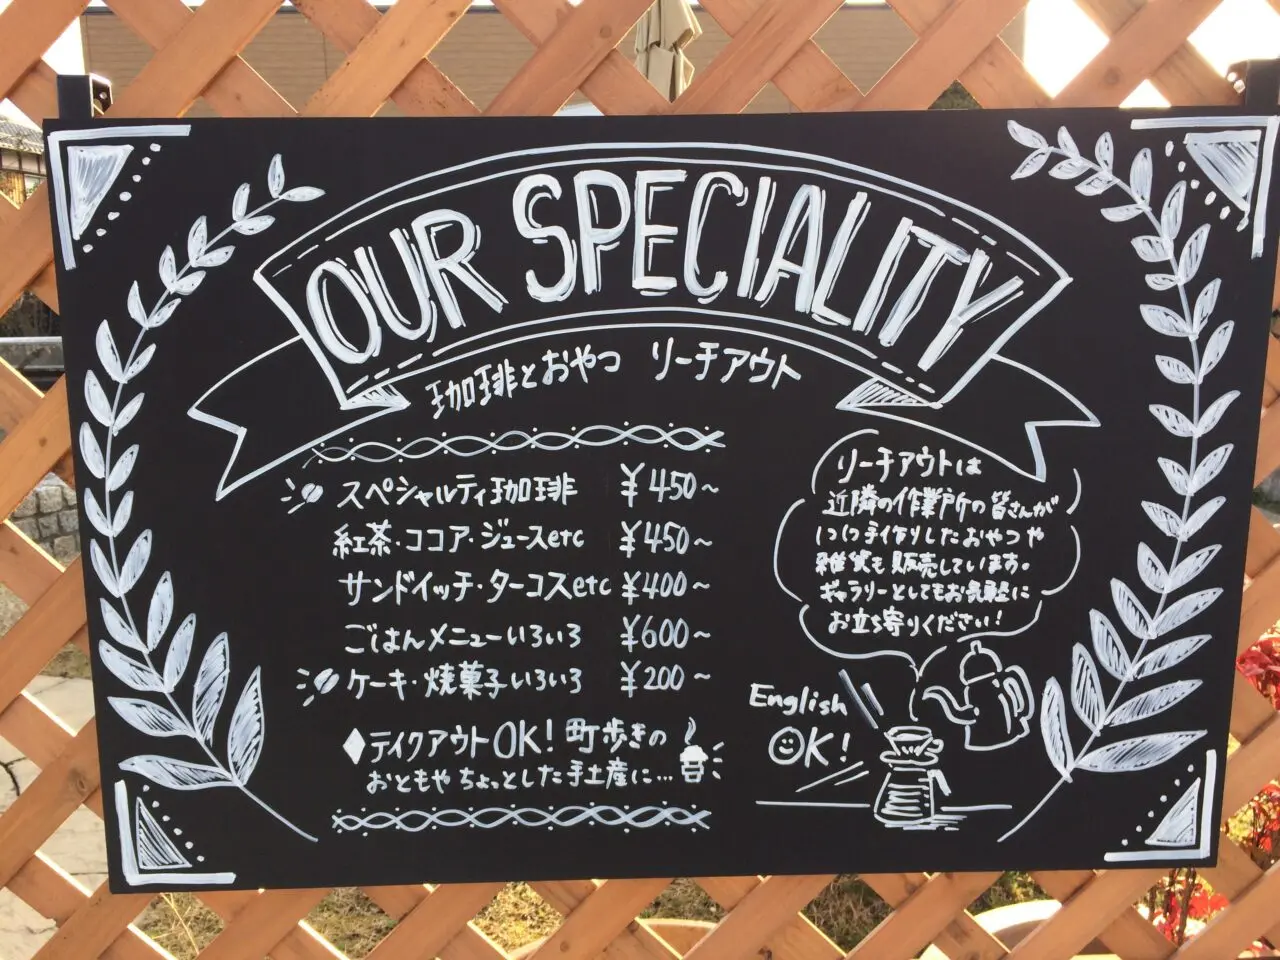 OUR SPECIALITY
珈琲とおやつ リーチアウト
スペシャルティ珈琲 ¥450~
紅茶・ココア・ジュースetc ¥450~
サンドイッチ・ターコスetc ¥400~
ごはんメニューいろいろ ¥600~
ケーキ・焼菓子いろいろ ¥200~
テイクアウトOK! 町歩きの
おともや ちょっとした手土産に...
リーチアウトは
近隣の作業所の皆さんが
1つ1つ手作りしたおやつや
雑貨も販売しています。
ギャラリーとしてもお気軽に
お立ち寄りください!
English
OK!